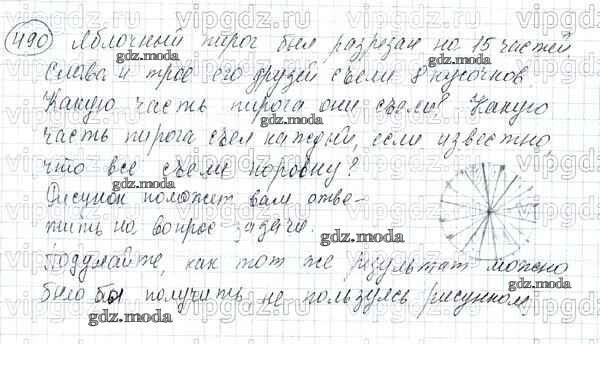 490 Яблочный пирог был разрезан на 15 частей
Слава и трое его друзей съели 8 кусочков.
Какую часть пирога они съели? Какую
часть пирога съел каждый, если известно,
что все съели поровну?
Рисунок поможет вам отве-
тить на вопрос задачи.
Подумайте, как тот же результат можно
было бы получить не пользуясь рисунком
gdz.moda
vipgdz.ru